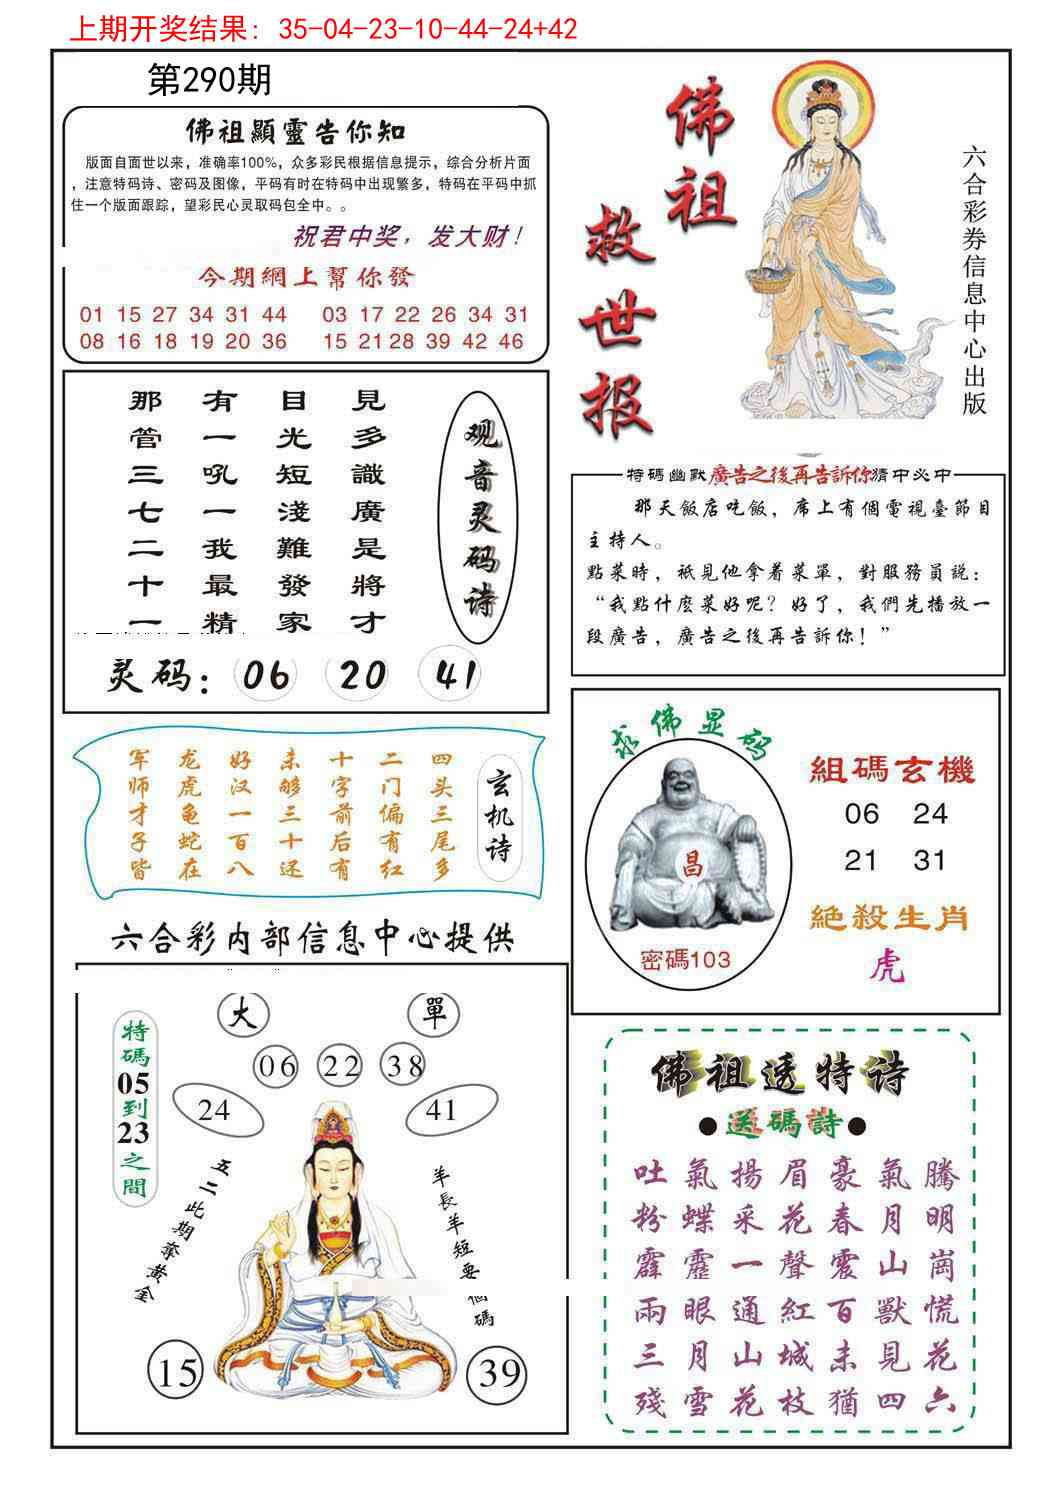 上期开奖结果: 35-04-23-10-44-24+42
第290期
佛祖顯靈告你知
版面自面世以来，准确率100%，众多彩民根据信息提示，综合分析片面
，注意特码诗、密码及图像，平码有时在特码中出现繁多，特码在平码中抓
住一个版面跟踪，望彩民心灵取码包全中。。
祝君中奖，发大财！
今期網上幫你發
01 15 27 34 31 44 03 17 22 26 34 31
08 16 18 19 20 36 15 21 28 39 42 46
佛祖
救世报
六合彩券信息中心出版
見多識廣是將才
目光短淺難發家
有一吼一我最精
那管三七二十一
观音灵码诗
灵码: 06 20 41
特碼幽默廣告之後再告訴你猜中必中
那天飯店吃飯，席上有個電視臺節目
主持人。
點菜時，祇見他拿着菜單，對服務員説：
“我點什麼菜好呢？好了，我們先播放一
段廣告，廣告之後再告訴你！”
玄机诗
四头三尾多
二门偏有红
十字前后有
未够三十还
好汉一百八
龙虎龟蛇在
军师才子皆
求佛显码
昌
密碼103
組碼玄機
06 24
21 31
絕殺生肖
虎
六合彩内部信息中心提供
大 單
06 22 38
24 41
特碼05到23之間
五二此期奪黄金
羊長羊短要個碼
15 39
佛祖透特诗
●送碼詩●
吐氣揚眉豪氣騰
粉蝶采花春月明
霹靂一聲震山崗
兩眼通紅百獸慌
三月山城未見花
殘雪花枝猶四六